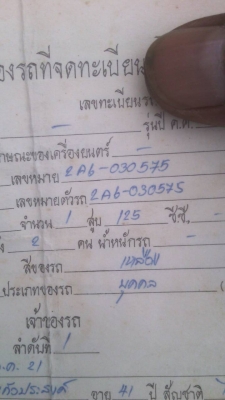 องรถที่จดทะเบียน
เลขทะเบียนรถ
รุ่นปี ค.ศ.
ักษณะของเครื่องยนตร์ -
เลขหมาย 2A6-030575
เลขหมายตัวรถ 2A6-030575
จำนวน 1 สูบ 125 ซี.ซี.
2 คน น้ำหนักรถ -
สีของรถ เหลือง
ประเภทของรถ บุคคล
เจ้าของรถ
ลำดับที่ 1
ค. 21
แก้วประสงค์ อายุ 41 ปี สัญชาติ